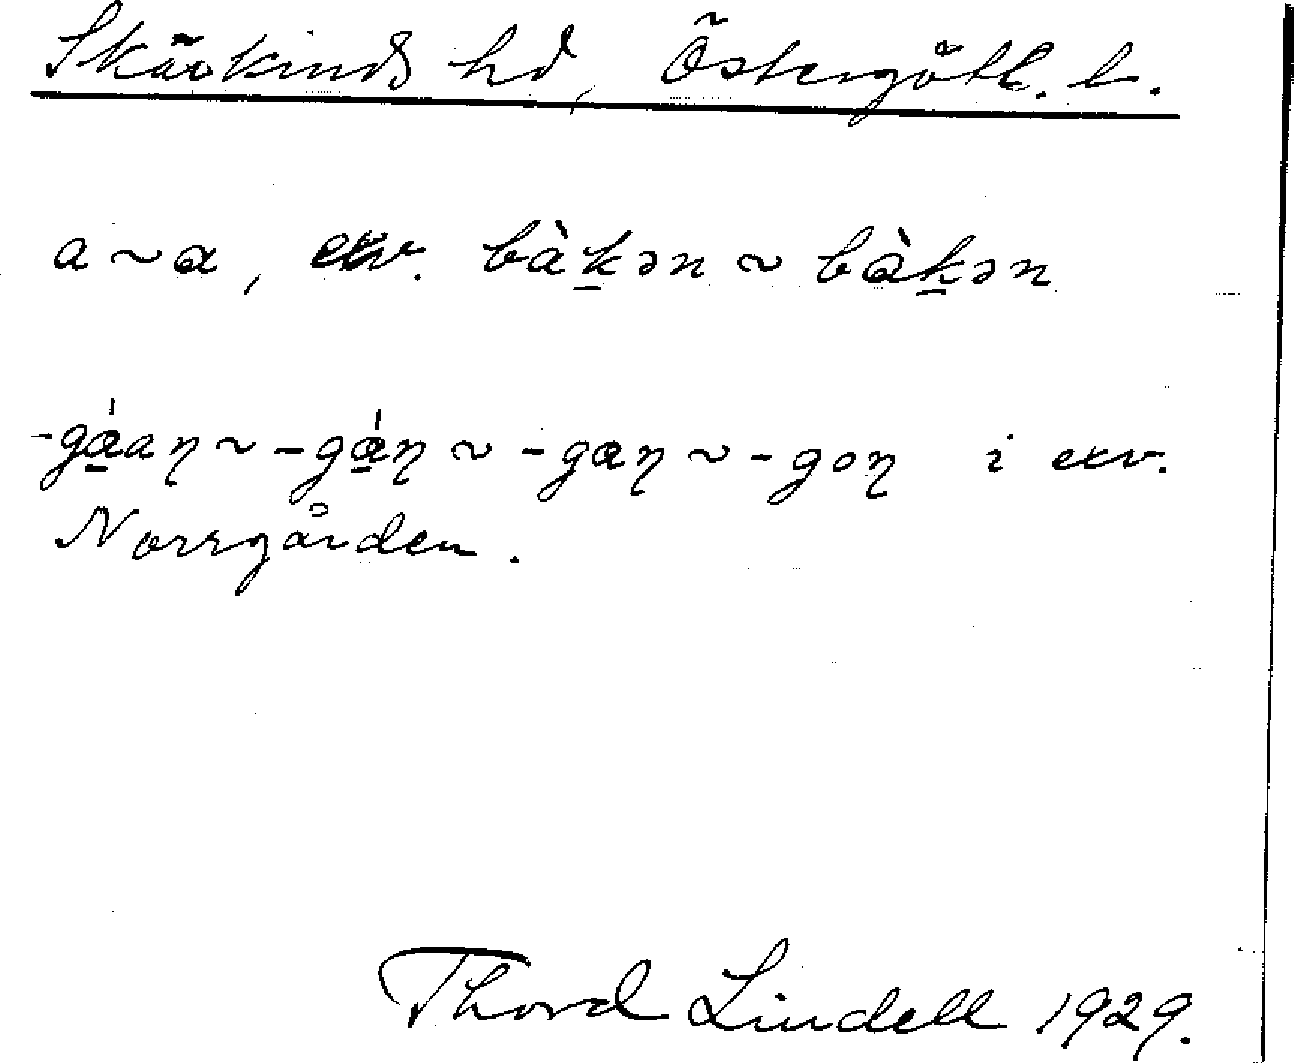 Skärkinds hd, Östergötl. l.
a ~ ɑ, exv. bàk̲ən ~ bɑ̀k̲ən
-gɑ̲́aŋ ~ -gɑ̲́ŋ ~ -gɑŋ ~ -goŋ i exv.
Norrgården.
Thord Lindell 1929.